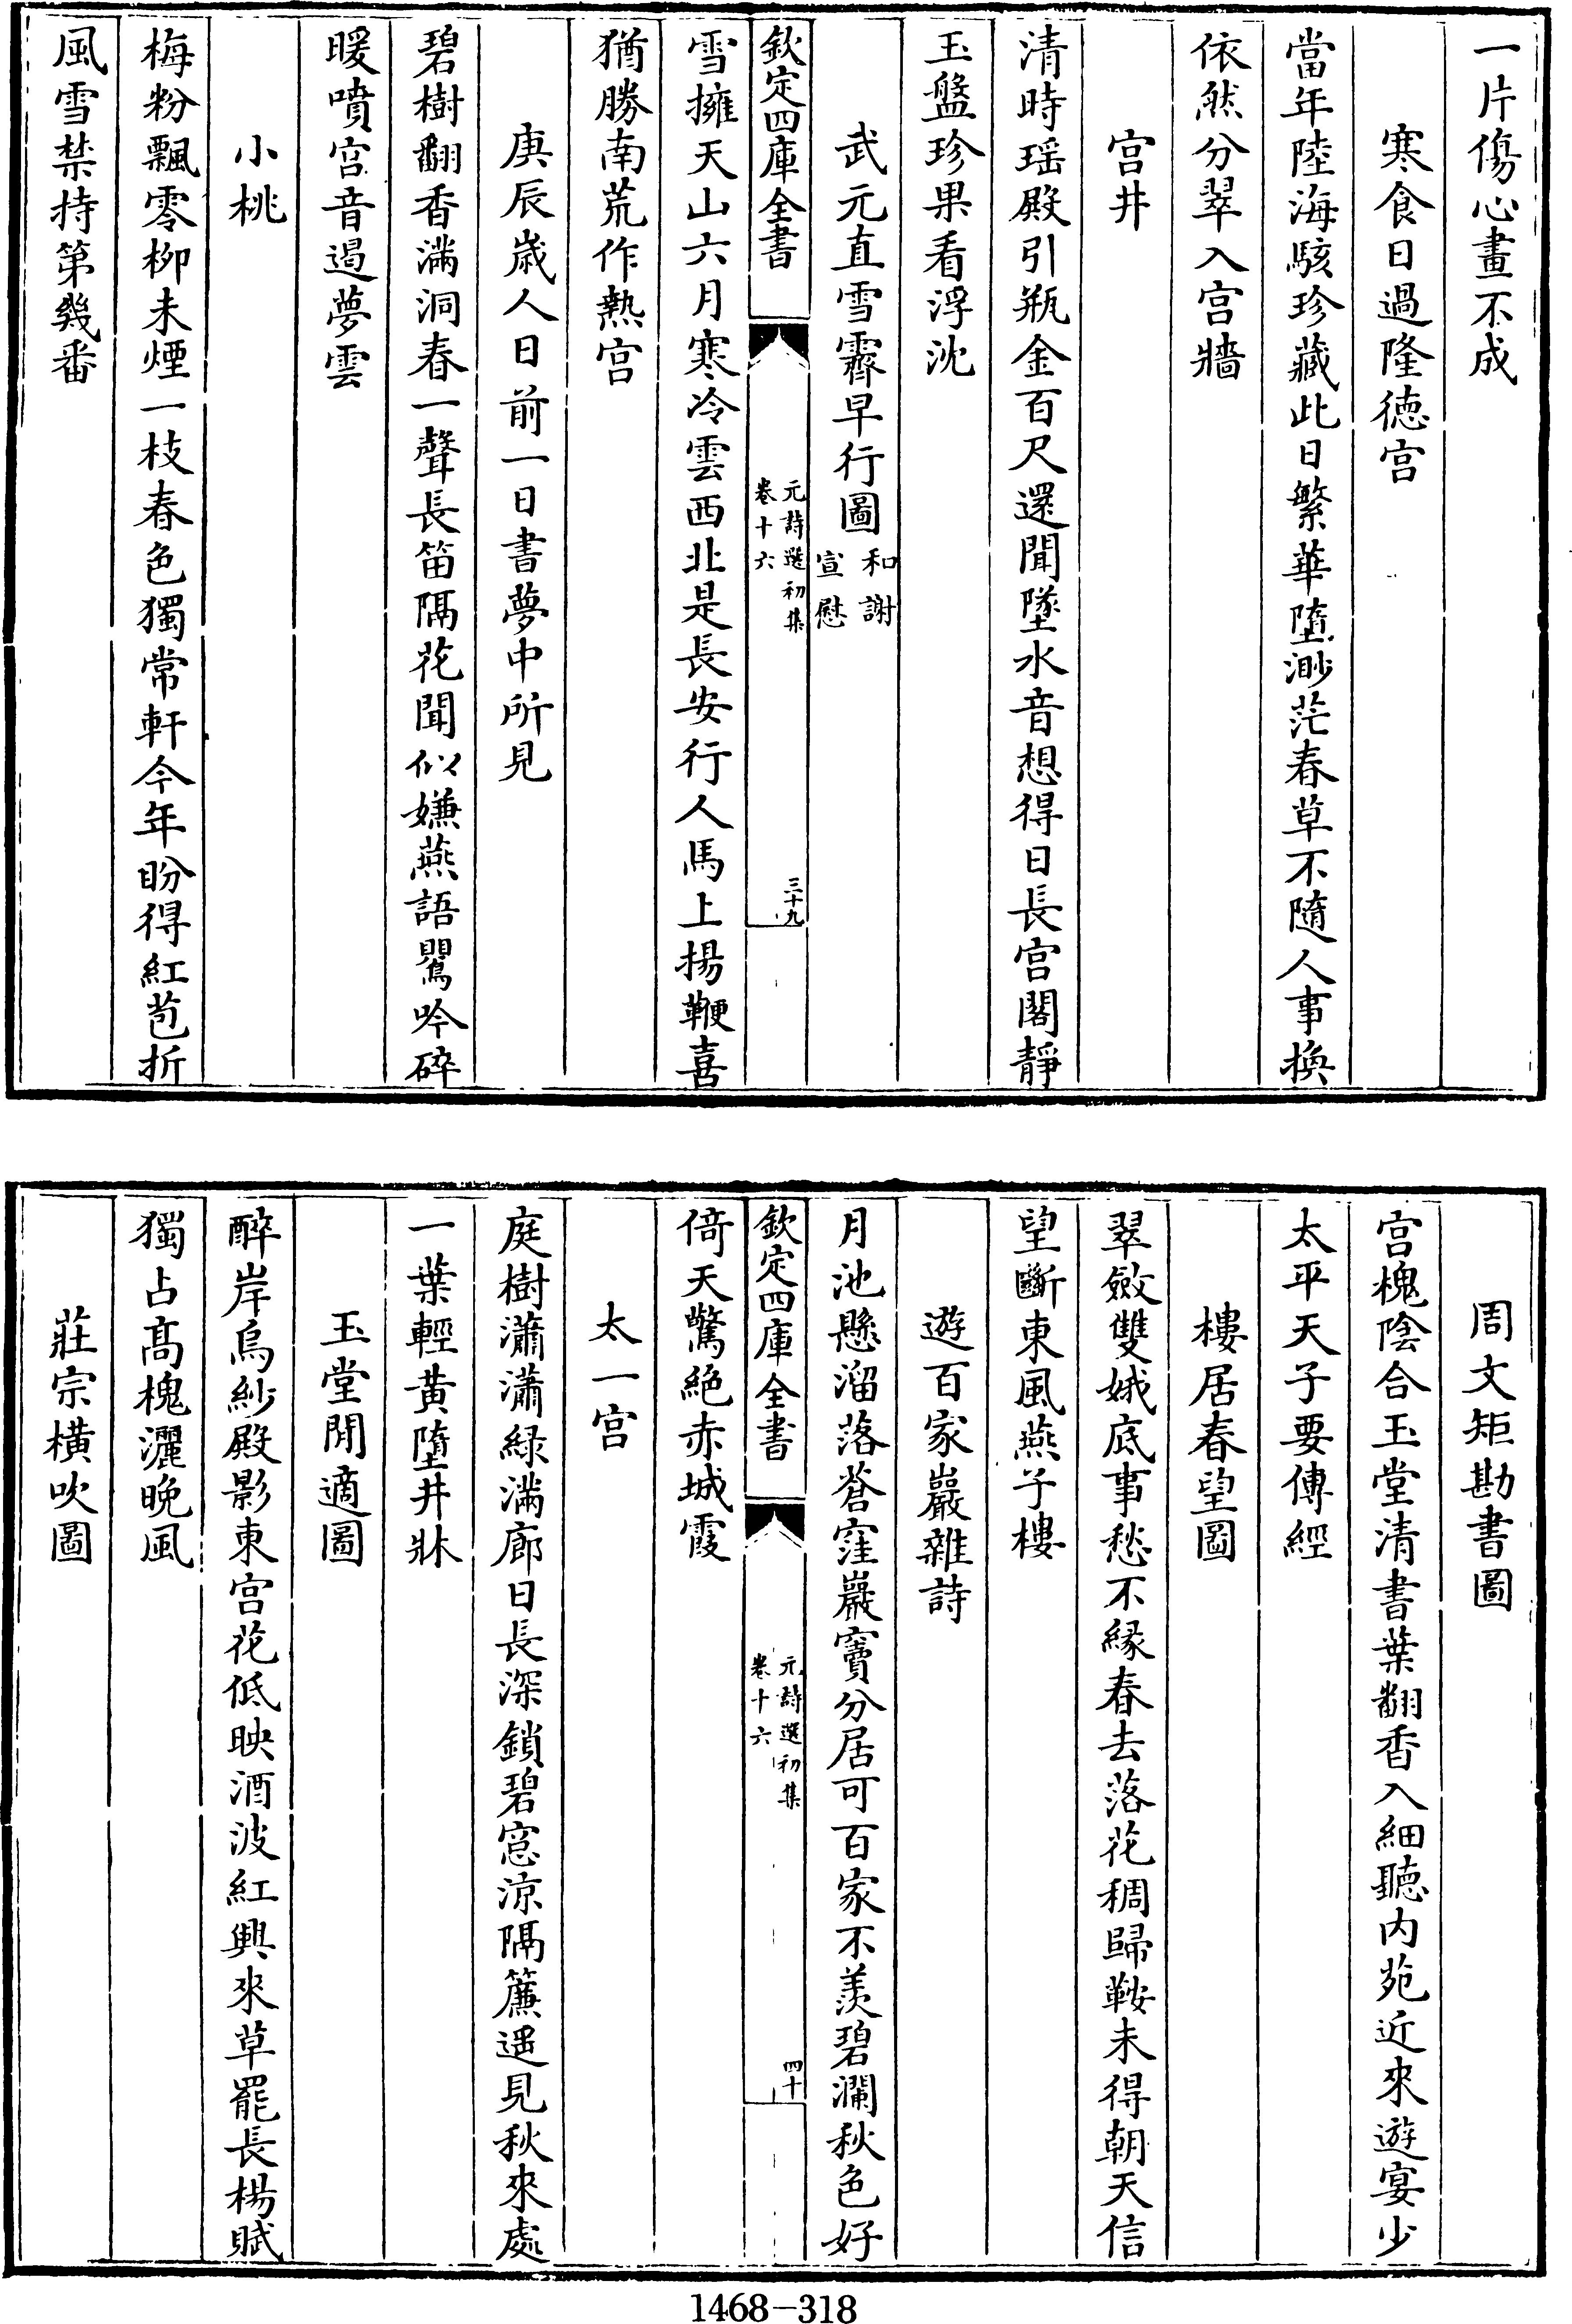 一片傷心畫不成
寒食日過隆德宮
當年陸海駭珍藏此日繁華墮渺茫春草不隨人事換
依然分翠入宮牆
宮井
清時瑶殿引瓶金百尺還聞墜水音想得日長宮閣靜
玉盤珍果看浮沈
武元直雪霽早行圖和謝宣慰
欽定四庫全書
元詩選初集
卷十六
三十九
雪擁天山六月寒冷雲西北是長安行人馬上揚鞭喜
猶勝南荒作熱官
庚辰歲人日前一日書夢中所見
碧樹翻香滿洞春一聲長笛隔花聞似嫌燕語鸎吟碎
暖噴宮音遏夢雲
小桃
梅粉飄零柳未煙一枝春色獨常軒今年盼得紅苞折
風雪禁持第幾番
周文矩勘書圖
宮槐陰合玉堂清書葉翻香入細聽内苑近來遊宴少
太平天子要傳經
樓居春望圖
翠斂雙娥底事愁不緣春去落花稠歸鞍未得朝天信
望斷東風燕子樓
遊百家巖雜詩
月池懸溜落蒼窪巖竇分居可百家不羨碧瀾秋色好
欽定四庫全書
元詩選初集
卷十六
四十
倚天驚絶赤城霞
太一宮
庭樹瀟瀟緑滿廊日長深鎖碧窓涼隔簾遥見秋來處
一葉輕黃墮井牀
玉堂閒適圖
醉岸烏紗殿影東宮花低映酒波紅興來草罷長楊賦
獨占高槐灑晚風
莊宗橫吹圖
1468-318